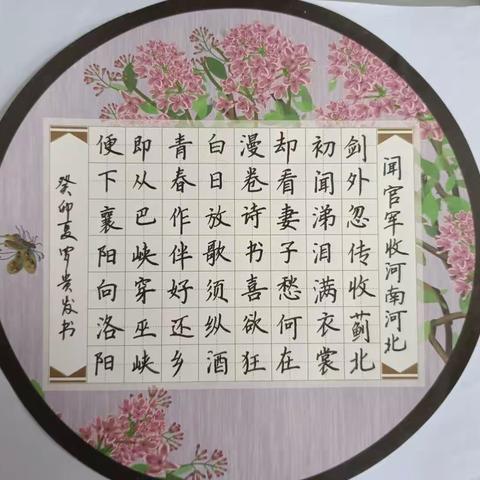 闻官军收河南河北
剑外忽传收蓟北
初闻涕泪满衣裳
却看妻子愁何在
漫卷诗书喜欲狂
白日放歌须纵酒
青春作伴好还乡
即从巴峡穿巫峡
便下襄阳向洛阳
癸卯夏罗贵发书